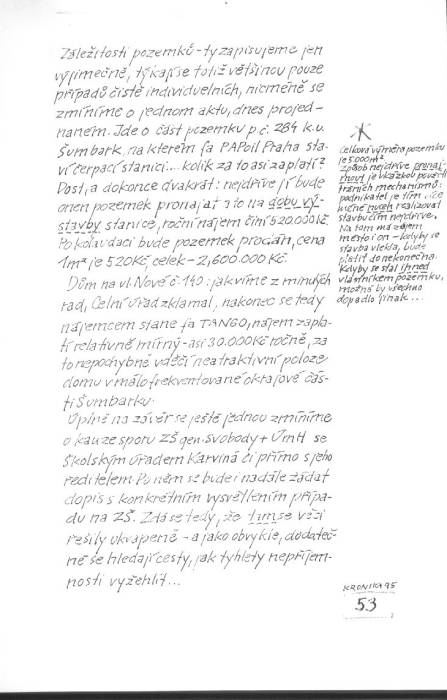 Záležitosti pozemků - ty zapisujeme jen
výjimečně, týkají se totiž většinou pouze
případů čistě individuelních, nicméně se
zmíníme o jednom aktu, dnes projed-
naném. Jde o část pozemku p.č. 284 k.ú.
Šumbark, na kterém fa PAPoil Praha sta-
ví čerpací stanici... kolik za to asi zaplatí?
Dost, a dokonce dvakrát: nejdříve jí bude
onen pozemek pronajat a to na dobu vý-
stavby stanice, roční nájem činí 520.000 Kč.
Po kolaudaci bude pozemek prodán, cena
1m² je 520 Kč, celek - 2,600.000 Kč.
Dům na ul. Nové č. 140: jak víme z minulých
rad, Celní úřad zklamal, nakonec se tedy
nájemcem stane fa TANGO, nájem zapla-
tí relativně mírný - asi 30.000 Kč ročně, za
to nepochybně vděčí neatraktivní poloze
domu v málo frekventované okrajové čás-
ti Šumbarku.
Úplně na závěr se ještě jednou zmíníme
o kauze sporu ZŠ gen. Svobody + ÚmH se
Školským úřadem Karviná či přímo s jeho
ředitelem. Po něm se bude i nadále žádat
dopis s konkrétním vysvětlením přípa-
du na ZŠ. Zdá se tedy, že tímse věci
řešily ukvapeně - a jako obvykle, dodateč-
ně se hledají cesty, jak tyhlety nepříjem-
nosti vyžehlit...
Celková výměra pozemku
je 5.000 m²
způsob nejdříve pronaj-
mout je ukázkou použití
tržních mechanismů:
podnikatel je tím
nucen realizovat
stavbu čím nejdříve.
Na tom má zájem
město i on - kdyby se
stavba vlekla, bude
platit do nekonečna.
Kdyby se stal ihned
vlastníkem pozemku,
možná by všechno
dopadlo jinak...
KRONIKA 95
53